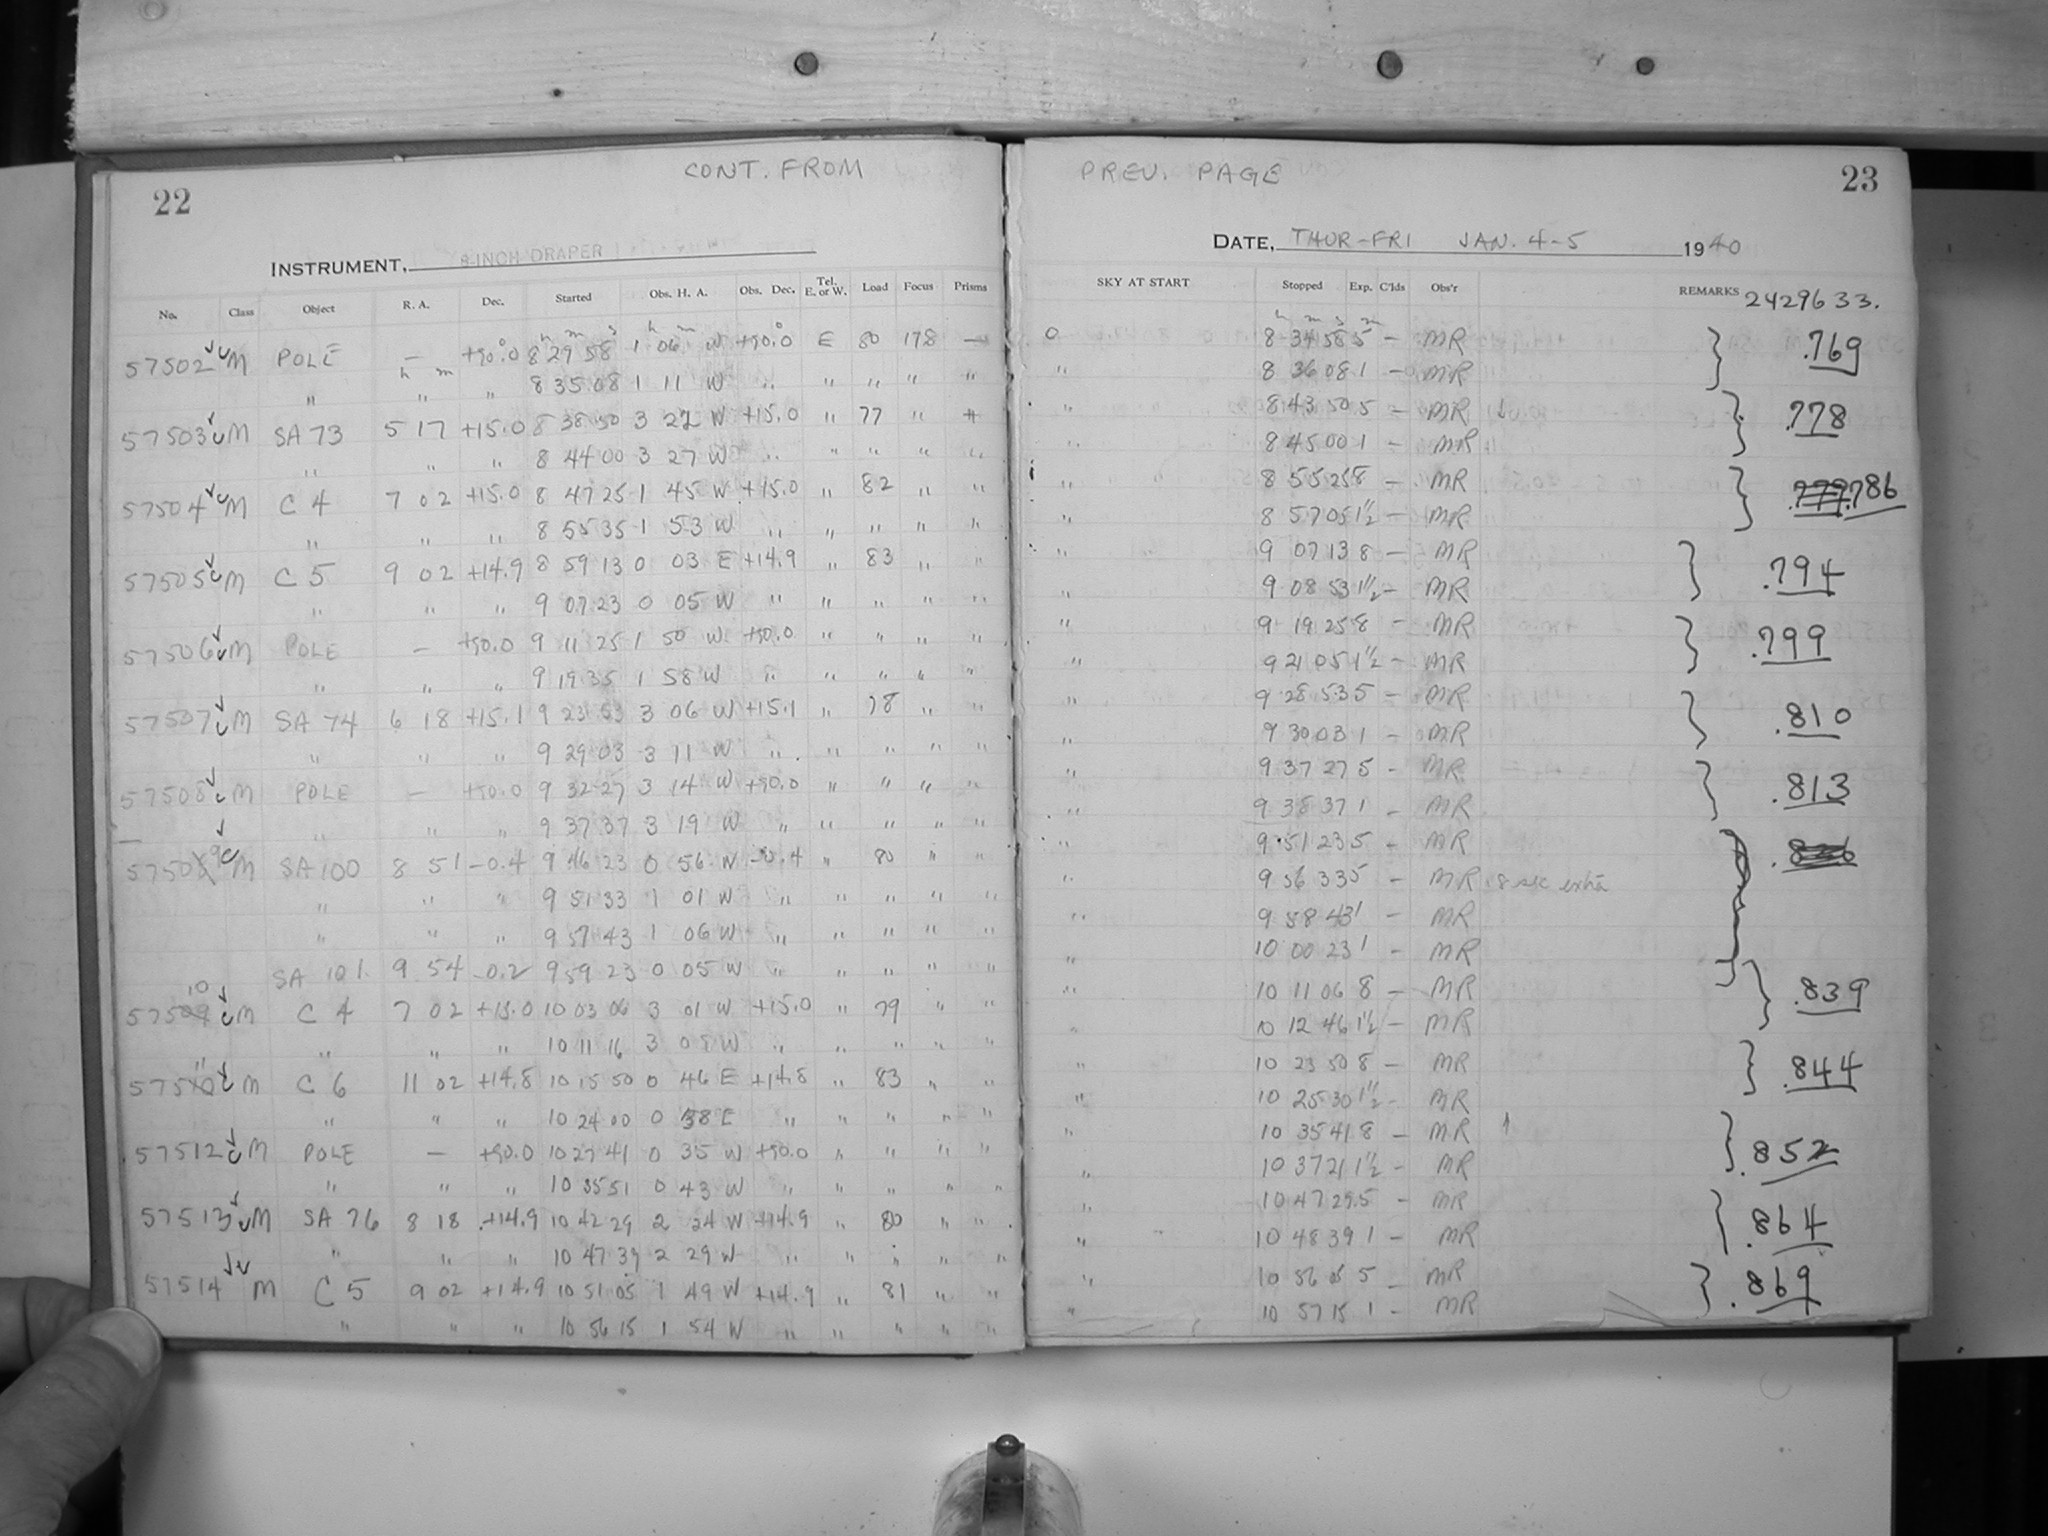 CONT. FROM PREV. PAGE
22 23
INSTRUMENT, 8 INCH DRAPER DATE, THUR-FRI JAN. 4-5 1940
No. Class Object R. A. Dec. Started Obs. H. A. Obs. Dec. Tel. E. or W. Load Focus Prisms SKY AT START Stopped Exp. C'lds Obs'r REMARKS 2429633.
h m s h m h m s m
57502 M POLE — +90.0 8 29 58 1 06 W +90.0 E 80 178 — 0 8 34 58 5 — MR .769
h m
" " " 8 35 08 1 11 W " " " " " " 8 36 08 1 — MR
57503 M SA 73 5 17 +15.0 8 38 50 3 22 W +15.0 " 77 " " " 8 43 50 5 — MR .778
" " " 8 44 00 3 27 W " " " " " " 8 45 00 1 — MR
57504 M C 4 7 02 +15.0 8 47 25 1 45 W +15.0 " 82 " " " 8 55 25 8 — MR .779 .786
" " " 8 55 35 1 53 W " " " " " " 8 57 05 1½ — MR
57505 M C 5 9 02 +14.9 8 59 13 0 03 E +14.9 " 83 " " " 9 07 13 8 — MR .794
" " " 9 07 23 0 05 W " " " " " " 9 08 53 1½ — MR
57506 M POLE — +90.0 9 11 25 1 50 W +90.0 " " " " " 9 19 25 8 — MR .799
" " " 9 19 35 1 58 W " " " " " " 9 21 05 1½ — MR
57507 M SA 74 6 18 +15.1 9 23 53 3 06 W +15.1 " 78 " " " 9 28 53 5 — MR .810
" " " 9 29 03 3 11 W " " " " " " 9 30 03 1 — MR
57508 M POLE — +90.0 9 32 27 3 14 W +90.0 " " " " " 9 37 27 5 — MR .813
" " " 9 37 37 3 19 W " " " " " " 9 38 37 1 — MR
57509 M SA 100 8 51 -0.4 9 46 23 0 56 W -0.4 " 80 " " " 9 51 23 5 — MR
" " " 9 51 33 1 01 W " " " " " " 9 56 33 5 — MR 8 sec extra
" " " 9 57 43 1 06 W " " " " " " 9 58 43 1 — MR
SA 101 9 54 -0.2 9 59 23 0 05 W " " " " " " 10 00 23 1 — MR
57510 M C 4 7 02 +15.0 10 03 06 3 01 W +15.0 " 79 " " " 10 11 06 8 — MR .839
" " " 10 11 16 3 09 W " " " " " " 10 12 46 1½ — MR
57511 M C 6 11 02 +14.8 10 15 50 0 46 E +14.8 " 83 " " " 10 23 50 8 — MR .844
" " " 10 24 00 0 38 E " " " " " " 10 25 30 1½ — MR
57512 M POLE — +90.0 10 27 41 0 35 W +90.0 " " " " " 10 35 41 8 — MR .852
" " " 10 35 51 0 43 W " " " " " " 10 37 21 1½ — MR
57513 M SA 76 8 18 +14.9 10 42 29 2 24 W +14.9 " 80 " " " 10 47 29 5 — MR .864
" " " 10 47 39 2 29 W " " " " " " 10 48 39 1 — MR
57514 M C 5 9 02 +14.9 10 51 05 1 49 W +14.9 " 81 " " " 10 56 05 5 — MR .869
" " " 10 56 15 1 54 W " " " " " " 10 57 15 1 — MR